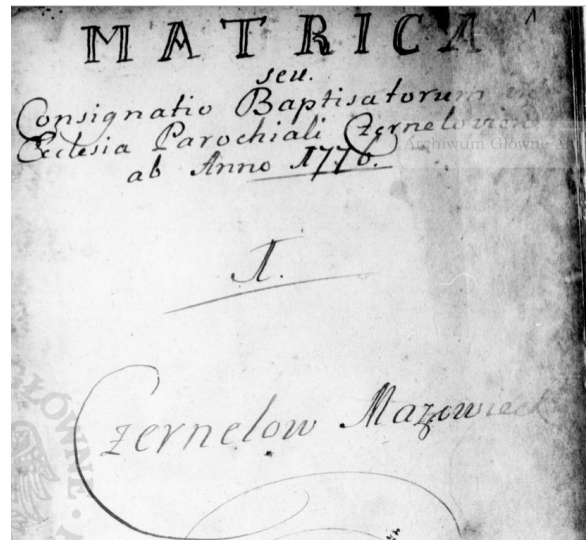 MATRICA
seu.
Consignatio Baptisatorum in
Ecclesia Parochiali Czernelovien
ab Anno 1776.
Archiwum Główne A
I.
Czernelow Mazowieck
GŁÓWNE